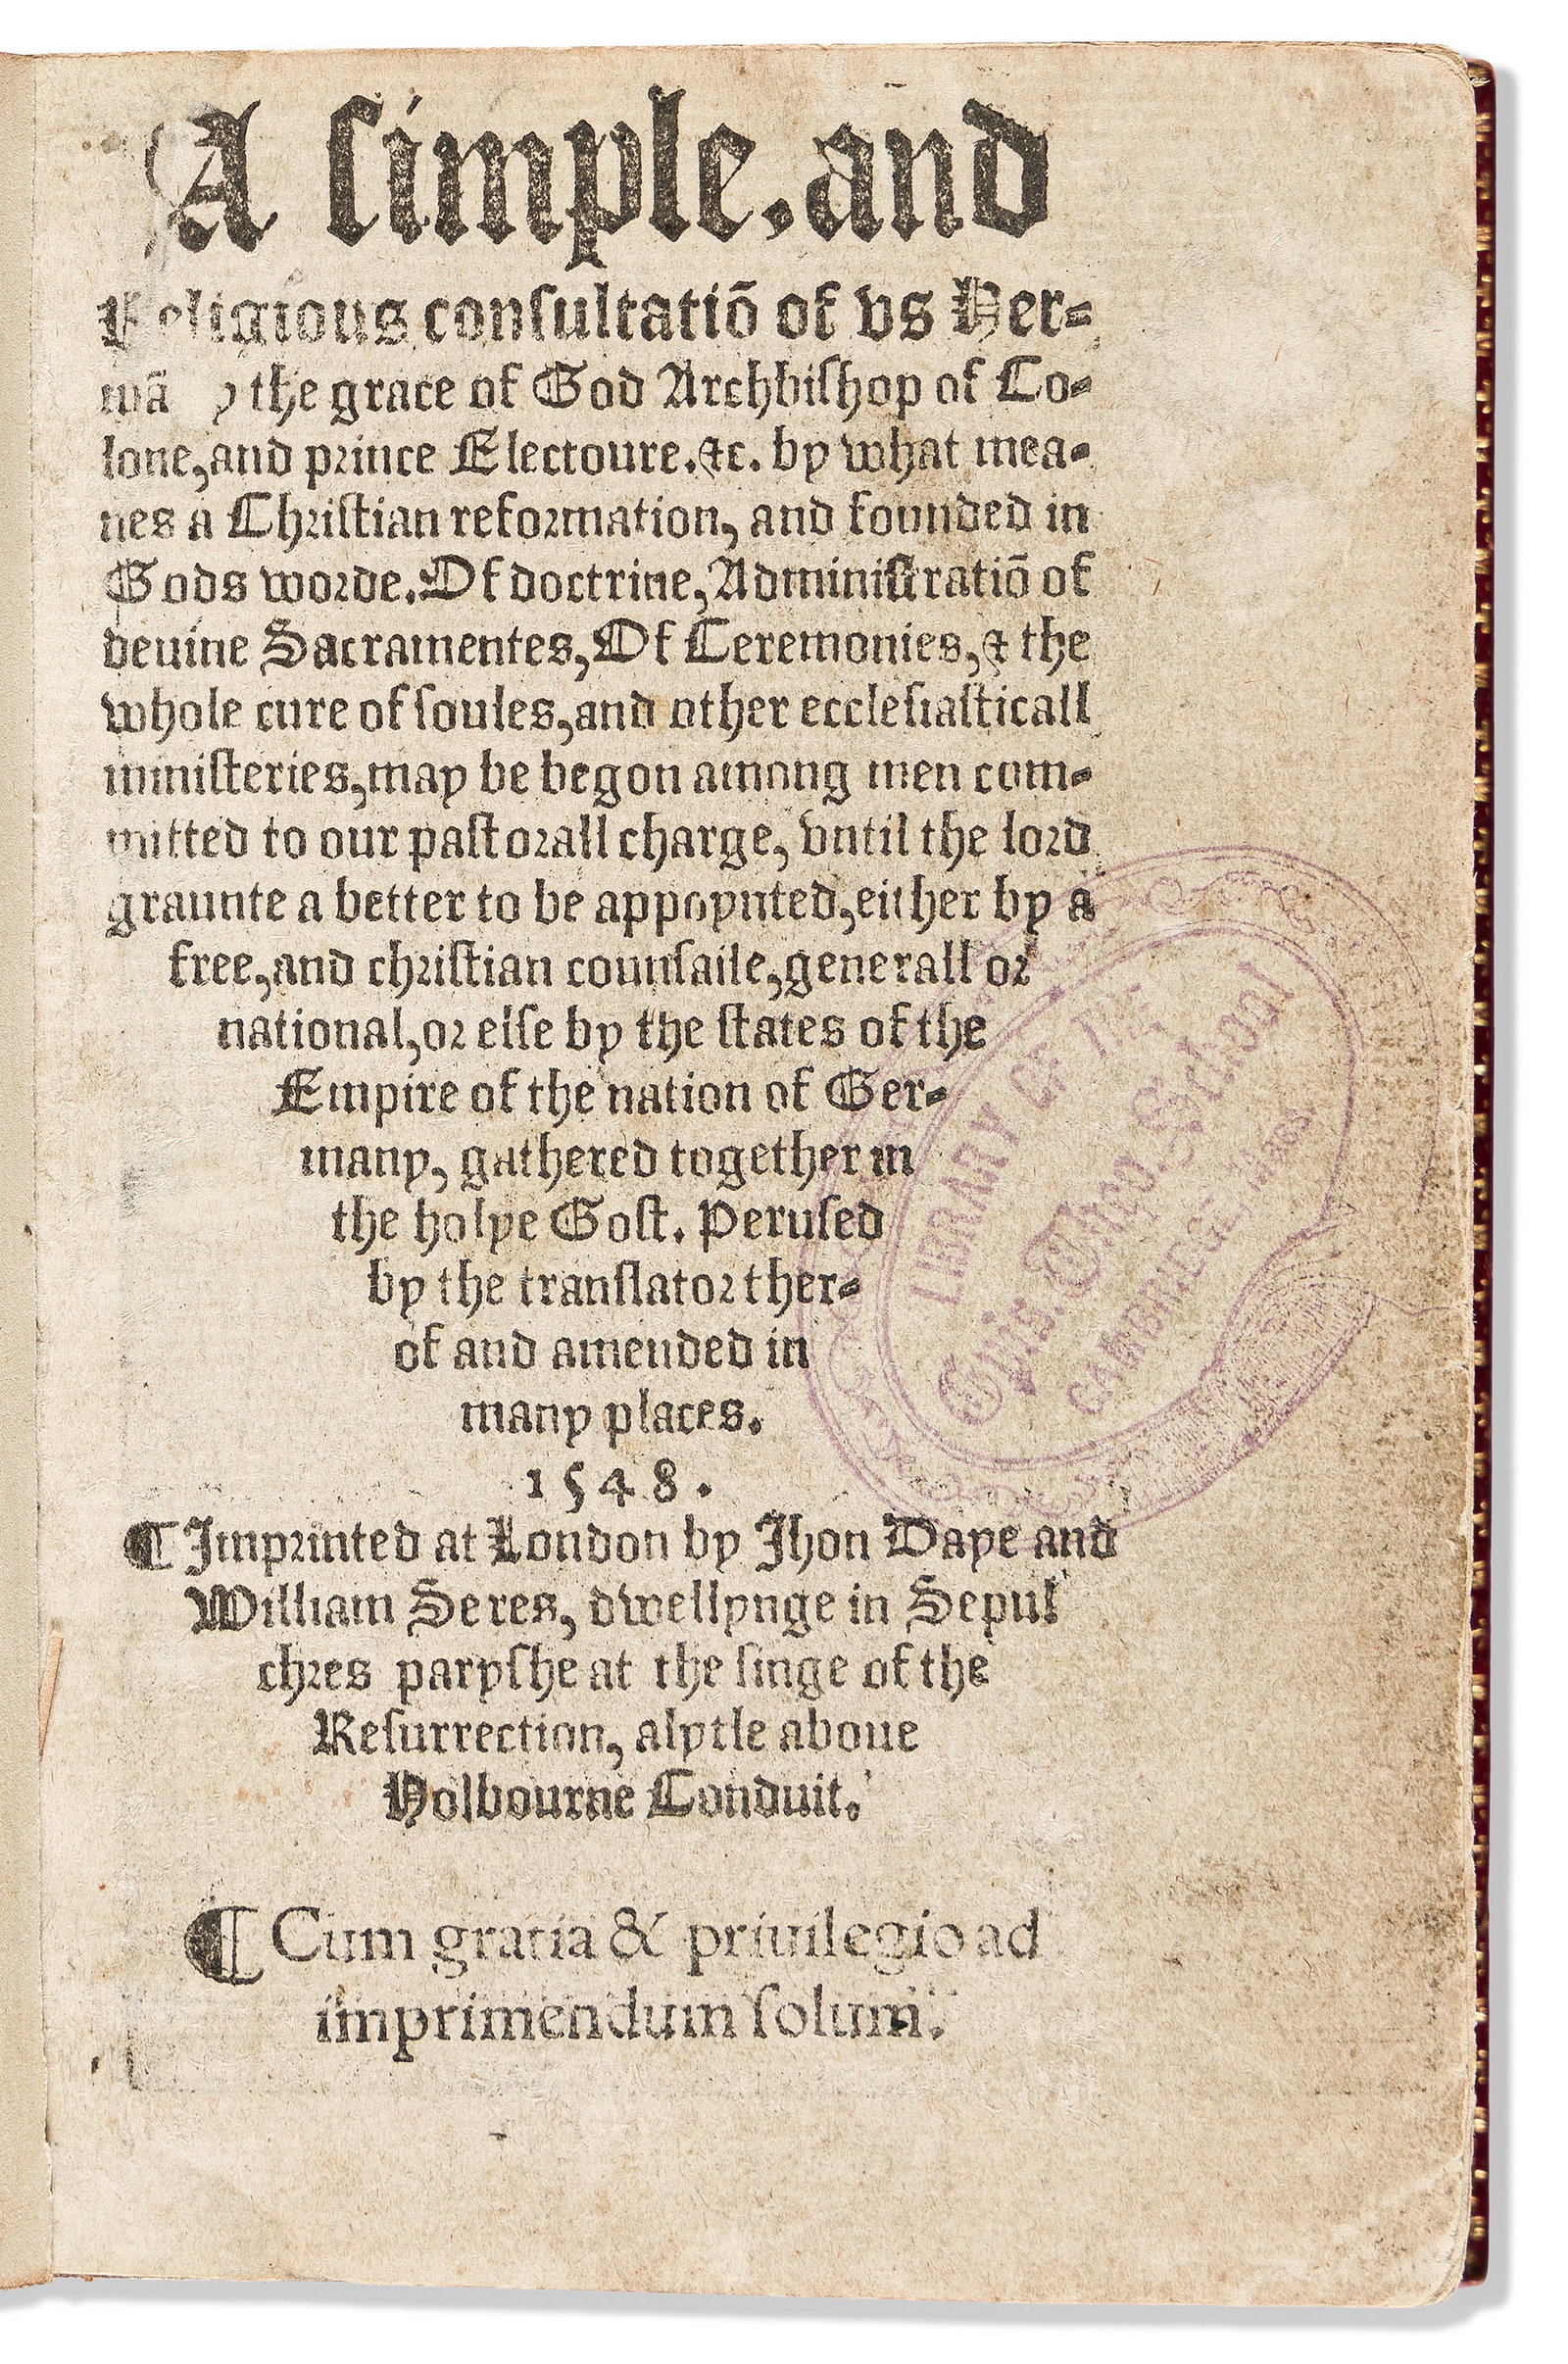 A ſimple, and
Religious conſultatiō of vs Her=
mā y the grace of God Archbiſhop of Co=
lone, and prince Electoure. &c. by what mea=
nes a Chriſtian reformation, and founded in
Gods worde. Of doctrine, Adminiſtratiō of
deuine Sacramentes, Of Ceremonies, & the
whole cure of ſoules, and other eccleſiaſticall
miniſteries, may be begon among men com=
mitted to our paſtorall charge, vntil the lord
graunte a better to be appoynted, either by a
free, and chriſtian counſaile, generall or
national, or elſe by the ſtates of the
Empire of the nation of Ger=
many, gathered together in
the holye Goſt. Peruſed
by the tranſlator ther=
of and amended in
many places.
1548.
¶ Imprinted at London by Jhon Daye and
William Seres, dwellynge in Sepul
chres paryſhe at the ſinge of the
Reſurrection, alytle aboue
Holbourne Conduit.
¶ Cum gratia & priuilegio ad
imprimendum ſolum.
LIBRARY OF THE
Epis. Theo. School
CAMBRIDGE, Mass.